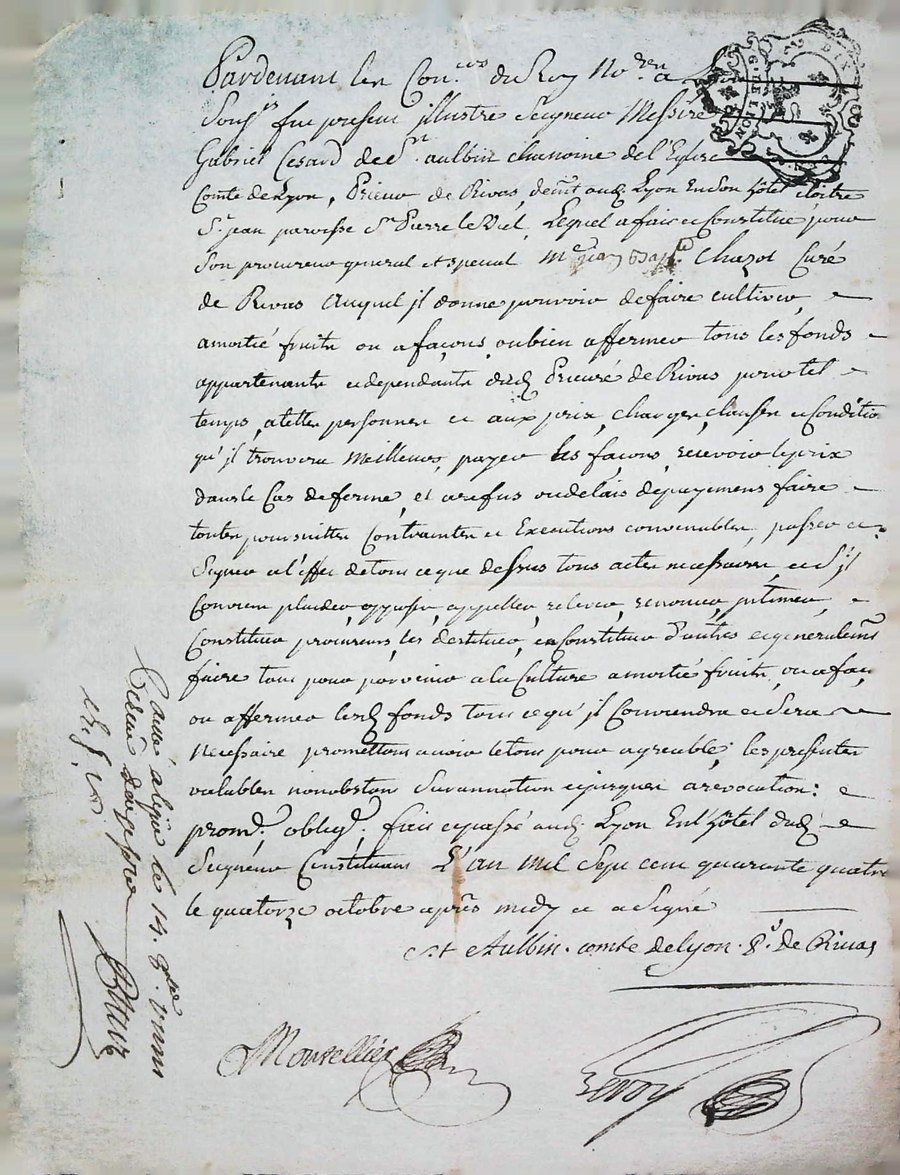 Pardevant les Con.ers du Roy No.res a
Sous.es fut present jllustre Seigneur Messire
Gabriel Cesard de St. aulbin chanoine de l'Eglise
Comte de Lyon, Prieur de Rivas, demt aud. Lyon En son hôtel cloitre
St. jean paroisse St. Pierre le Viel, Lequel a fait et Constitué pour
Son procureur general et special Me. jean Bapte. Chazot Curé
de Rivas Auquel jl donne pouvoir de faire cultiver,
amortié fruits ou a façons, oubien affermer tous les fonds
appartenants et dependants dud. Prieuré de Rivas pour tel
temps, a telles personnes et aux prix, charges, clauses et Conditio
qu'jl trouvera meilleurs, payer les façons, recevoir le prix
dans le Cas de ferme, et a refus ou delais de payement faire
toutes poursuittes Contraintes et Executions convenables, passer et
Signer a l'effet de tout ce que dessus tous actes necessaires, et S'jl
Convient plaider, opposer, appeller, relever, renoncer, jntimer,
Constituer procureurs, les destituer, en Constituer d'autres et generalemt
faire tout pour parvenir a la Culture a mortié fruits, ou a faç
ou affermer lesd. fonds tout ce qu'jl Conviendra et Sera
Necessaire promettant avoir le tout pour agreable, les presentes
valables nonobstant Surannation et jusques a revocation:
promt. obligt. fait et passé aud. Lyon En l'hôtel dud.
Seigneur Constituant L'an mil Sept cent quarante quatre
le quatorze octobre après midy et a Signé
St Aulbin comte de Lyon pr. de Rivas
Moutellier
Revoy
à Lyon le 14. 8bre